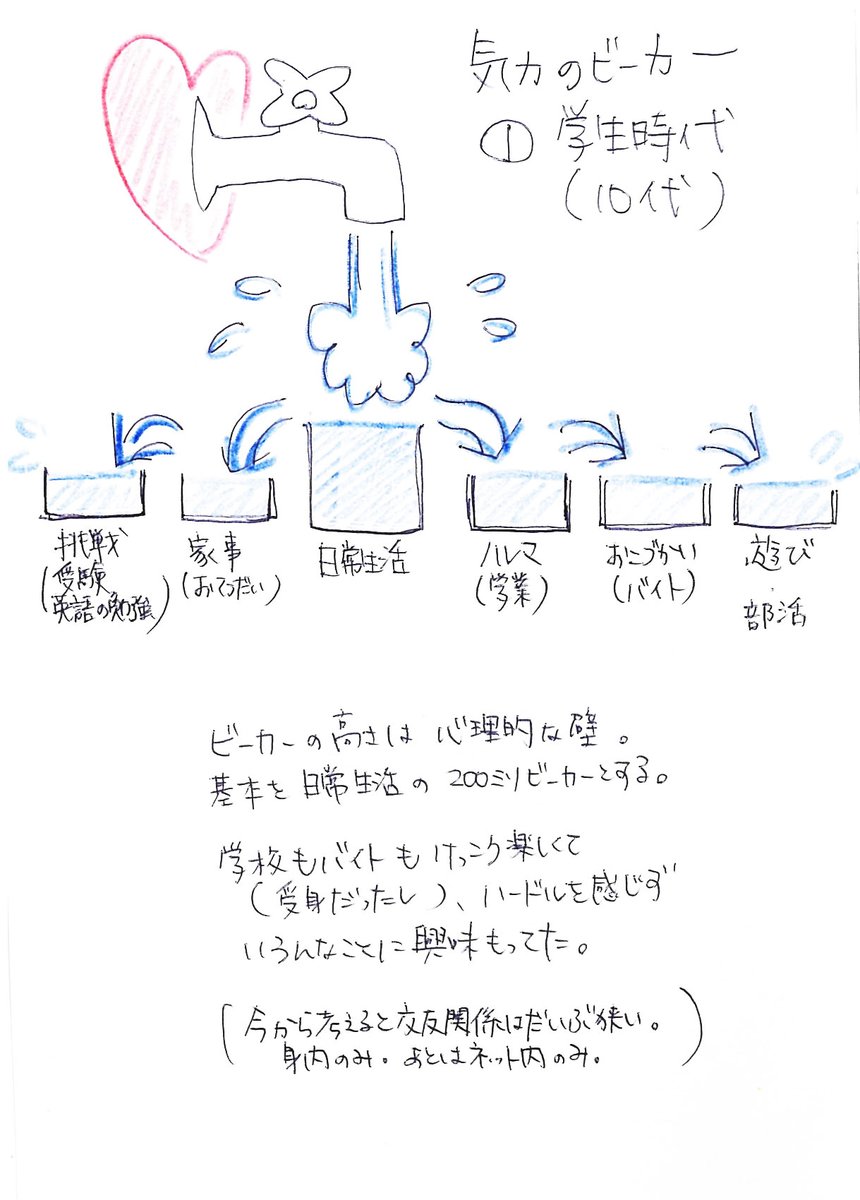 気力のビーカー
① 学生時代
(10代)
挑戦
(受験
英語の勉強)
家事
(おてつだい)
日常生活
ノルマ
(学業)
おこづかい
(バイト)
遊び
部活
ビーカーの高さは心理的な壁。
基本を日常生活の200ミリビーカーとする。
学校もバイトもけっこう楽しくて
(受身だったし)、ハードルを感じず
いろんなことに興味もってた。
(今から考えると交友関係はだいぶ狭い。
身内のみ。あとはネット内のみ。)